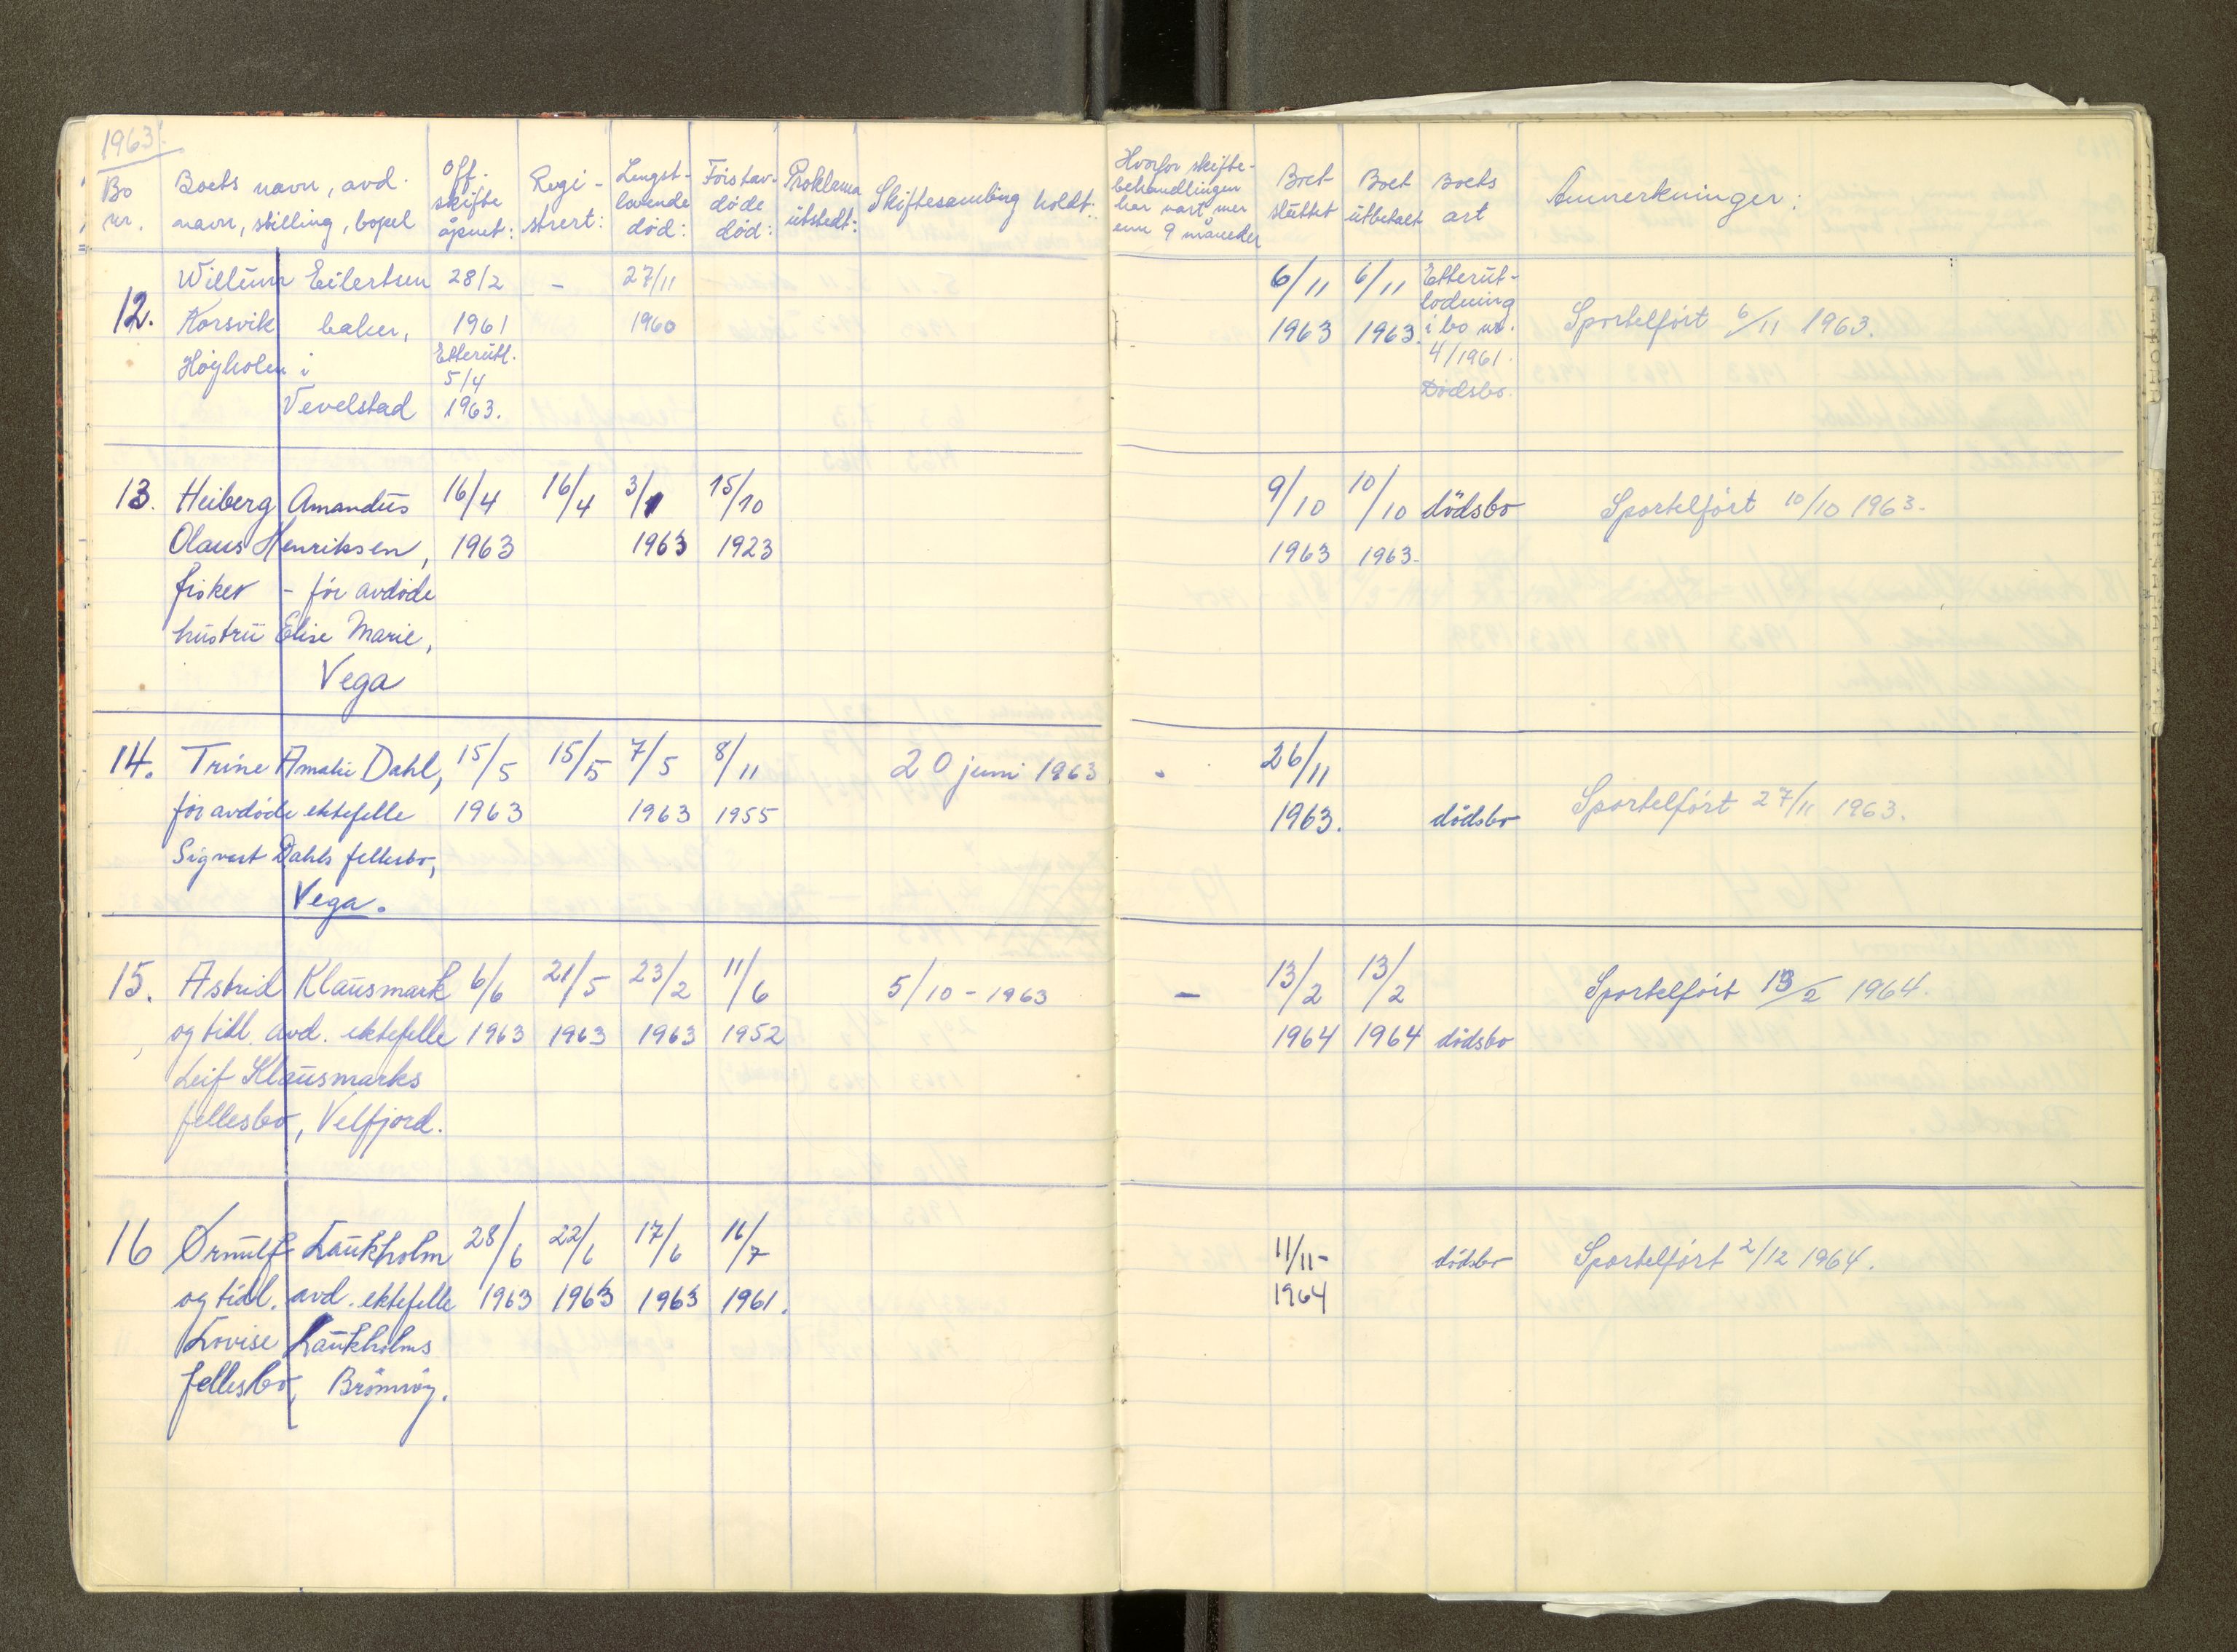 1963.
Bo nr.
Boets navn, avd. navn, stilling, bopel
Off. skifte åpnet:
Regi-strert:
Lengst-levende død:
Först av-døde død:
Proklama utstedt:
Skiftesamling holdt:
Hvorfor skifte-behandlingen har vart mer enn 9 måneder
Boet sluttet
Boet utbetalt
Boets art
Anmerkninger:
12. Willum Eilertsen 28/2 - 27/11 6/11 6/11 Etterut-
lodning
Korsvik baker, 1961 1960 1963 1963. i bo nr. Sportelført 6/11 1963.
Høyholm i Etterutl. 4/1961.
5/4 Dødsbo.
Vevelstad 1963.
13. Heiberg Amandus 16/4 16/4 3/1 15/10 9/10 10/10 dödsbo Sportelført 10/10 1963.
Olaus Henriksen, 1963 1963 1923 1963 1963.
fisker - før avdøde
hustru Elise Marie,
Vega
14. Trine Amalie Dahl, 15/5 15/5 7/5 8/11 20 juni 1963 - 26/11
før avdøde ektefelle 1963 1963 1955 1963. dödsbo Sportelført 27/11 1963.
Sigvart Dahls fellesbo,
Vega.
15. Astrid Klausmark 6/6 21/5 23/2 11/6 5/10 - 1963 - 13/2 13/2 Sportelført 13/2 1964.
og tidl. avd. ektefelle 1963 1963 1963 1952 1964 1964 dödsbo
Leif Klausmarks
fellesbo, Velfjord.
16 Ørnulf Laukholm 28/6 22/6 17/6 16/7 11/11- dödsbo Sportelført 2/12 1964.
og tidl. avd. ektefelle 1963 1963 1963 1961. 1964
Lovise Laukholms
fellesbo, Brønnøy.